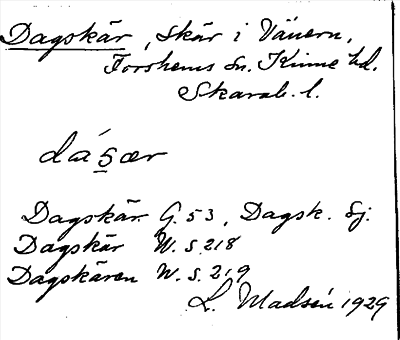 Dagskär, Skär i Vänern,
Forshems sn. Kinne hd.
Skarab. l.
dásær
Dagskär G. 53, Dagsk. Sj.
Dagskär W. s. 218
Dagskären W. s. 219
L. Madsén 1929